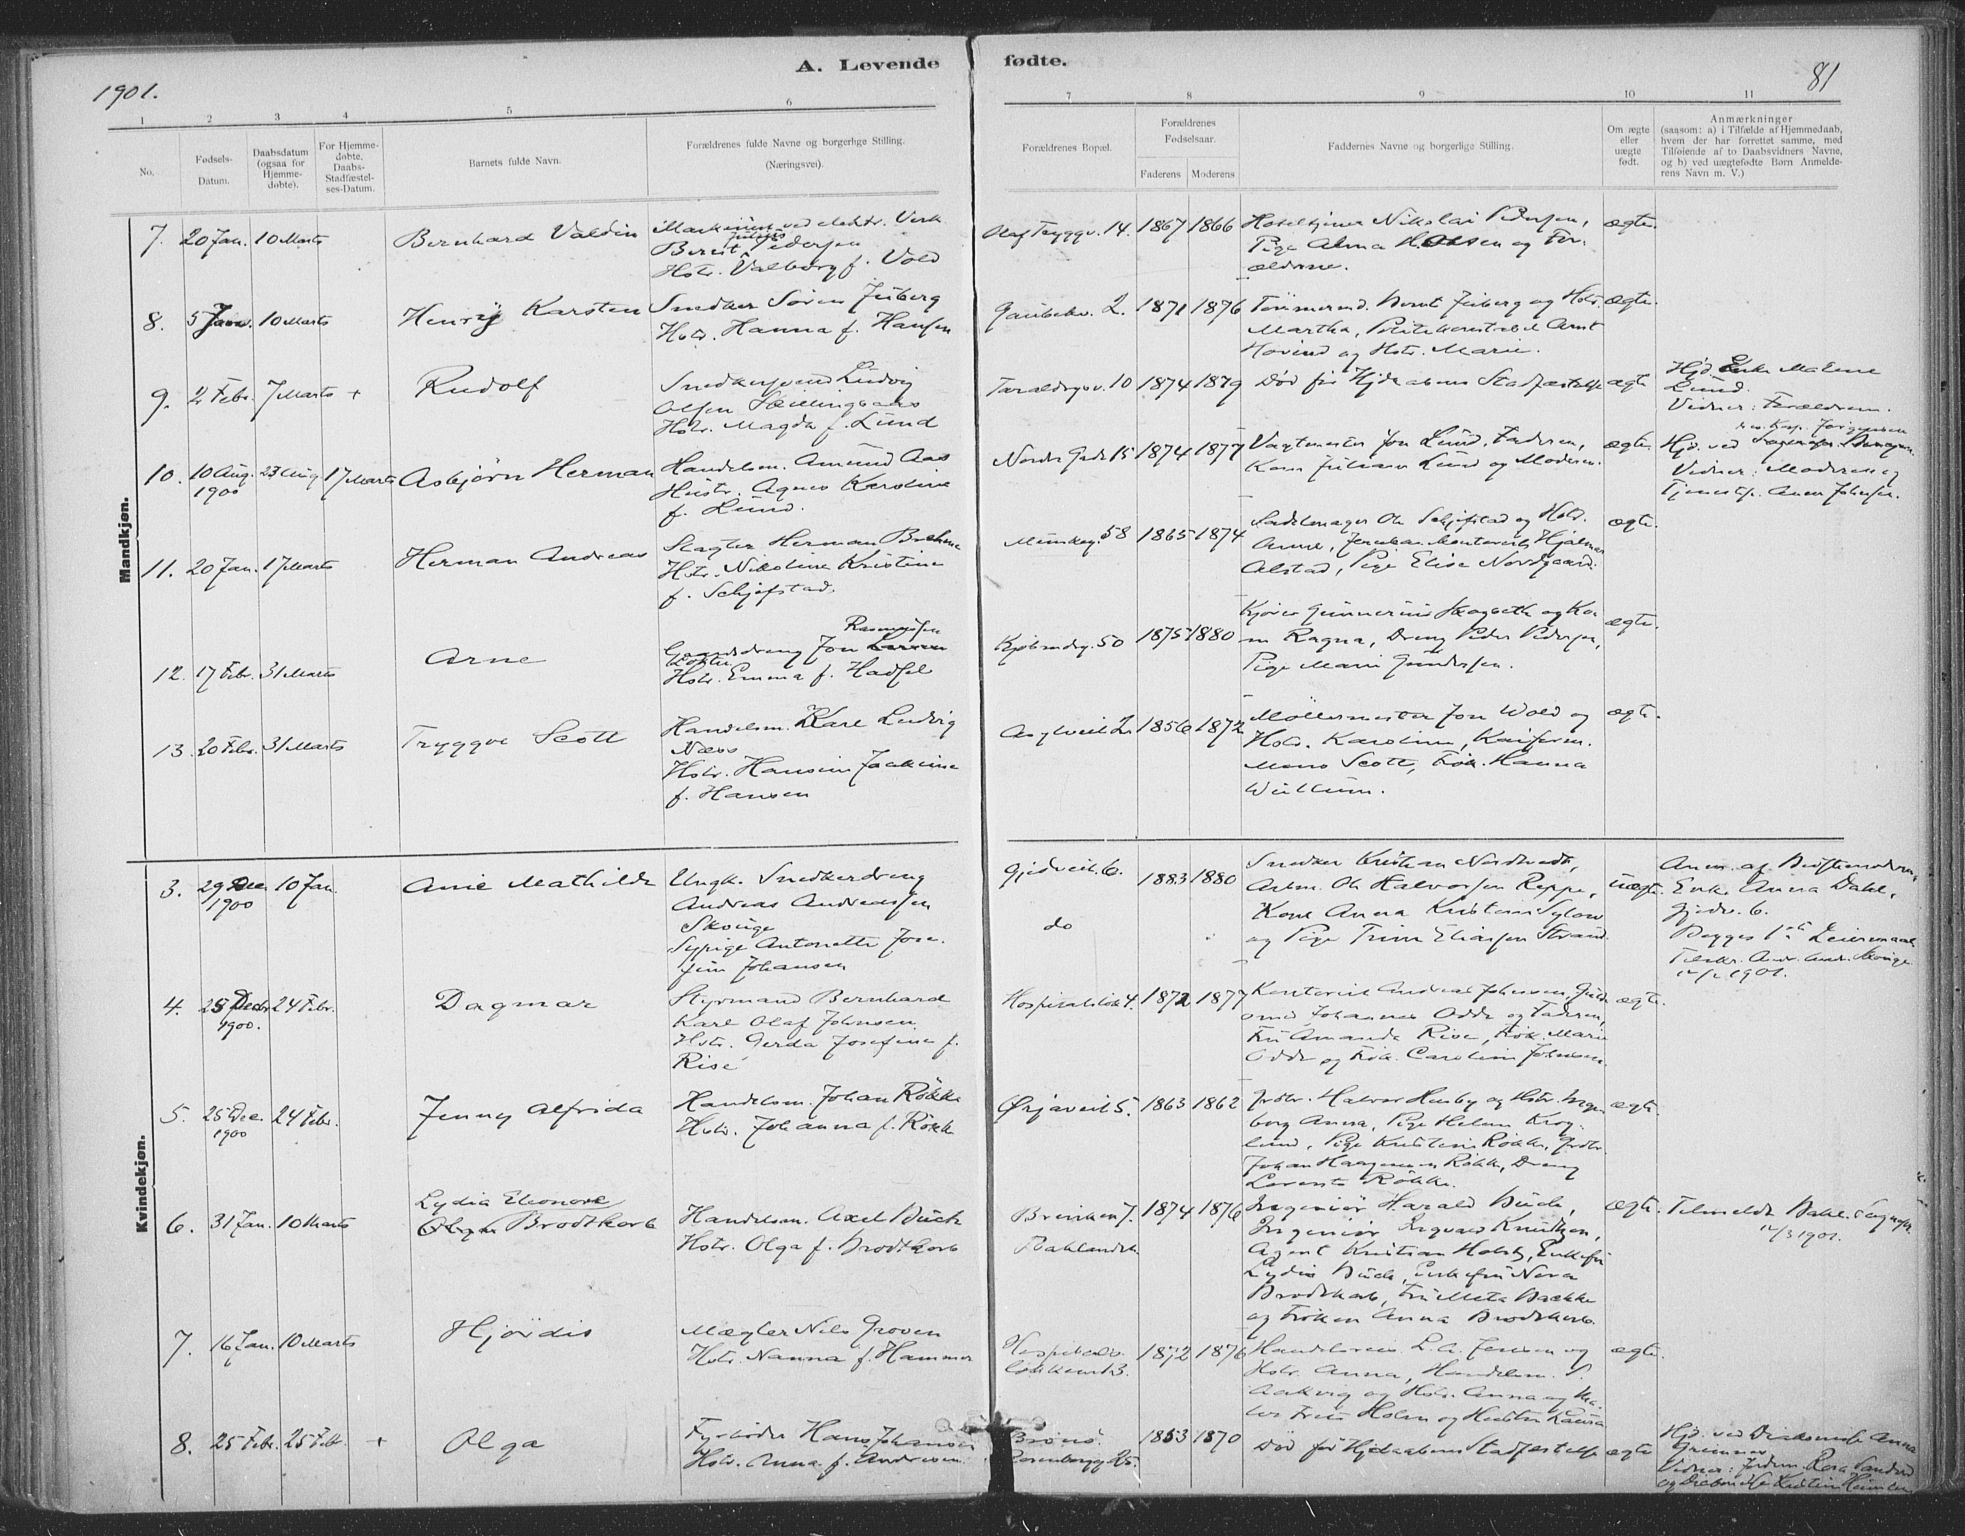 1901.
A. Levende fødte.
81
1 2 3 4 5 6 7 8 9 10 11
No.
Fødsels-Datum.
Daabsdatum (ogsaa for Hjemmedøbte).
For Hjemmedøbte, Daabs-Stadfæstelses-Datum.
Barnets fulde Navn.
Forældrenes fulde Navne og borgerlige Stilling.
(Næringsvei).
Forældrenes Bopæl.
Forældrenes Fødselsaar.
Faderens Moderens
Faddernes Navne og borgerlige Stilling.
Om ægte eller uægte født.
Anmærkninger
(saasom: a) i Tilfælde af Hjemmedaab,
hvem der har forrettet samme, med
Tilføiende af to Daabsvidners Navne,
og b) ved uægtefødte Børn Anmelde-
rens Navn m. V.)
Mandkjøn.
7. 20 Jan. 10 Marts Bernhard Valdin
Pedersen
Hstr. Valborg f. Vold
Olaf Tryggv. 14. 1867 1866
Nikolai Pedersen,
Pige Alma Olsen og For-
ældrene.
ægte.
8. 5 Janu. 10 Marts Henrij Karsten
Snedker Søren Juberg
Hstr. Hanna f. Hansen
Gaubekv. 2. 1871 1876
Bernt Juberg og Hstr.
Martha, Politikonstabel Arnt
Hovind og Hstr. Marie.
ægte.
9. 2 Febr. 7 Marts + Rudolf
Snedkersvend Ludvig
Olsen
Hstr. Magda f. Lund
Taraldsgv. 10 1874 1879
Død før Hjdaabens Stadfæstelse
ægte
Hjd. Enke Malene
Lund.
Vidner: Forældrene.
10. 10 Aug. 1900 23 Aug 17 Marts Asbjørn Herman
Handelsm. Amund Aas
Hustr. Agnes Karoline
f. Lund.
Nordre Gade 15 1874 1877
Vagtmester Jon Lund, Faderen,
Kone Juliane Lund og Moderen.
ægte.
Hjd. ved
Vidner: Moderen og
Tjenestp. Anna Johnsen.
11. 20 Jan. 17 Marts Herman Andreas
Slagter Herman
Hstr. Nikoline Kristine
f. Schjefstad.
Munkeg. 58 1865 1874
Sadelmager Ole Schjefstad og Hstr.
Anne, Hjalmar
Alstad, Pige Elise Nordgaard.
ægte.
12. 17 Febr. 31 Marts Arne
Rasmussen
Gaardsdreng Jon
Hstr. Emma f. Hadsel
Kjøbmdg. 50 1875 1880
Kjører Gunnerius
Ragna, Dreng Peder Pedersen,
Pige Marie Gundersen.
ægte.
13. 20 Febr. 31 Marts Tryggve Scott
Handelsm. Karl Ludvig
Næss
Hstr. Hansine Jackine
f. Hansen
Asylveit 2. 1856 1872
Møllermester Jon Wold og
Hstr. Karoline,
Mons Scott, Frk. Hanna
ægte.
Kvindekjøn.
3. 29 Dec. 1900 10 Jan. Anie Mathilde
Ungk. Snedkerdreng
Andreas Andreassen
Skauge
Sypige Antonette Jose-
fine Johansen
Gjedveit. 6.
do
1883 1880
Snedker Kristian
Arbm. Ole Halvorsen Reppe,
Kone Anna Kristine Sylow
og Pige Trine Eliassen Strand
uægte.
Anm. af Bedstemoderen,
Enke Anna Dahl,
Gjedv. 6.
Begges 1ste Leiermaal
1901.
4. 25 Decbr 1900. 24 Febr. Dagmar
Styrmand Bernhard
Karl Olaf Johnsen
Hstr. Gerda Josefine f.
Rise
Hospitalslök 4. 1872 1877
Kontorist Andreas Johnsen, Guld-
smed Johannes Odde og Faderen,
Fru Amanda Rise, Frk. Marie
Odde og Frk. Caroline Johnsen.
ægte.
5. 25 Dec. 1900 24 Febr. Jenny Alfrida
Handelsm. Johan Rökke
Hstr. Johanna f. Rökk
Ørjaveit 5. 1863 1862
Grdbr. Halvor Husby og Hstr. Inge-
borg Anna, Pige Helene Krog-
lund, Pige Kristine Rökke, Grdbr.
Johan Haagensen Rökke, Dreng
Lorents Rökke.
ægte.
6. 31 Jan. 10 Marts Lydia Eleonore
Brodtkorb
Handelsm. Axel Buck
Hstr. Olga f. Brodtkorb
Brinken 7.
Baklandet.
1874 1876
Ingeniør Harald Buck,
Ingeniør Sigvald Knudtzen,
Agent Kristian Holst, Enkefru
Lydia Buck, Enkefru Nora
Brodtkorb, Fru Meta Bække
og Frøken Anna Brodtkorb.
ægte.
Tilmeldt Bakl. Sognepr.
12/3 1901.
7. 16 Jan. 10 Marts Hjördis
Mægler Nils Groven
Hstr. Nanna f. Hammer
Hospitals-
lökken 13.
1872 1876
L. A. Jensen og
Hstr. Anna, Handelsm. P.
Aakvig og Hstr. Anna og Ma-
ler Frits Holm og Hustru Laura
ægte.
8. 25 Febr. 25 Feb. + Olga
Fyrbøder Hans Johansen
Hstr. Anna f. Andresen
Brönö.
Rosenborgg 25.
1853 1870
Død før Hjdaabens Stadfæstelse
ægte
Hjd. ved Diakonisse Anna
Vidner: Jordm.